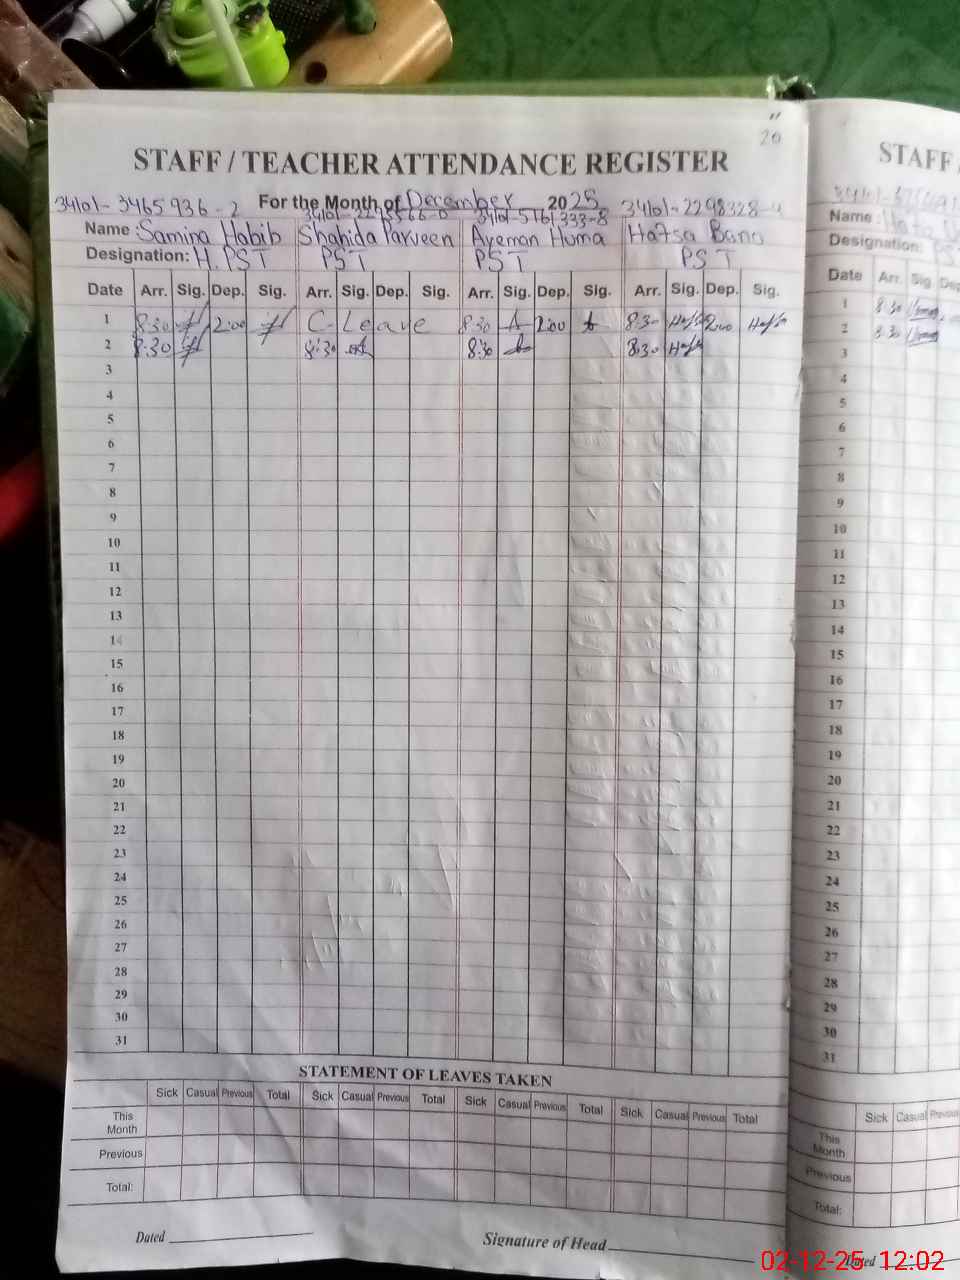 20
STAFF / TEACHER ATTENDANCE REGISTER
For the Month of December 2025
34101-3465936-2 34101-5161333-8 34101-2298328-4
Name: Samina Habib Shahida Parveen Ayeman Huma Hafsa Bano
Designation: H.PST PST PST PST
Date Arr. Sig. Dep. Sig. Arr. Sig. Dep. Sig. Arr. Sig. Dep. Sig. Arr. Sig. Dep. Sig.
1 8:30 2:00 C-Leave 8:30 2:00 8:30 Hafsa 2:00 Hafsa
2 8:30 8:30 8:30 8:30 Hafsa
3
4
5
6
7
8
9
10
11
12
13
14
15
16
17
18
19
20
21
22
23
24
25
26
27
28
29
30
31
STATEMENT OF LEAVES TAKEN
Sick Casual Previous Total Sick Casual Previous Total Sick Casual Previous Total Sick Casual Previous Total
This Month
Previous
Total:
Dated Signature of Head
STAFF /
Name:
Designation: PST
Date Arr. Sig. Dep.
1 8:30
2 8:30
3
4
5
6
7
8
9
10
11
12
13
14
15
16
17
18
19
20
21
22
23
24
25
26
27
28
29
30
31
Sick Casual Previous
This Month
Previous
Total:
Dated
02-12-25 12:02